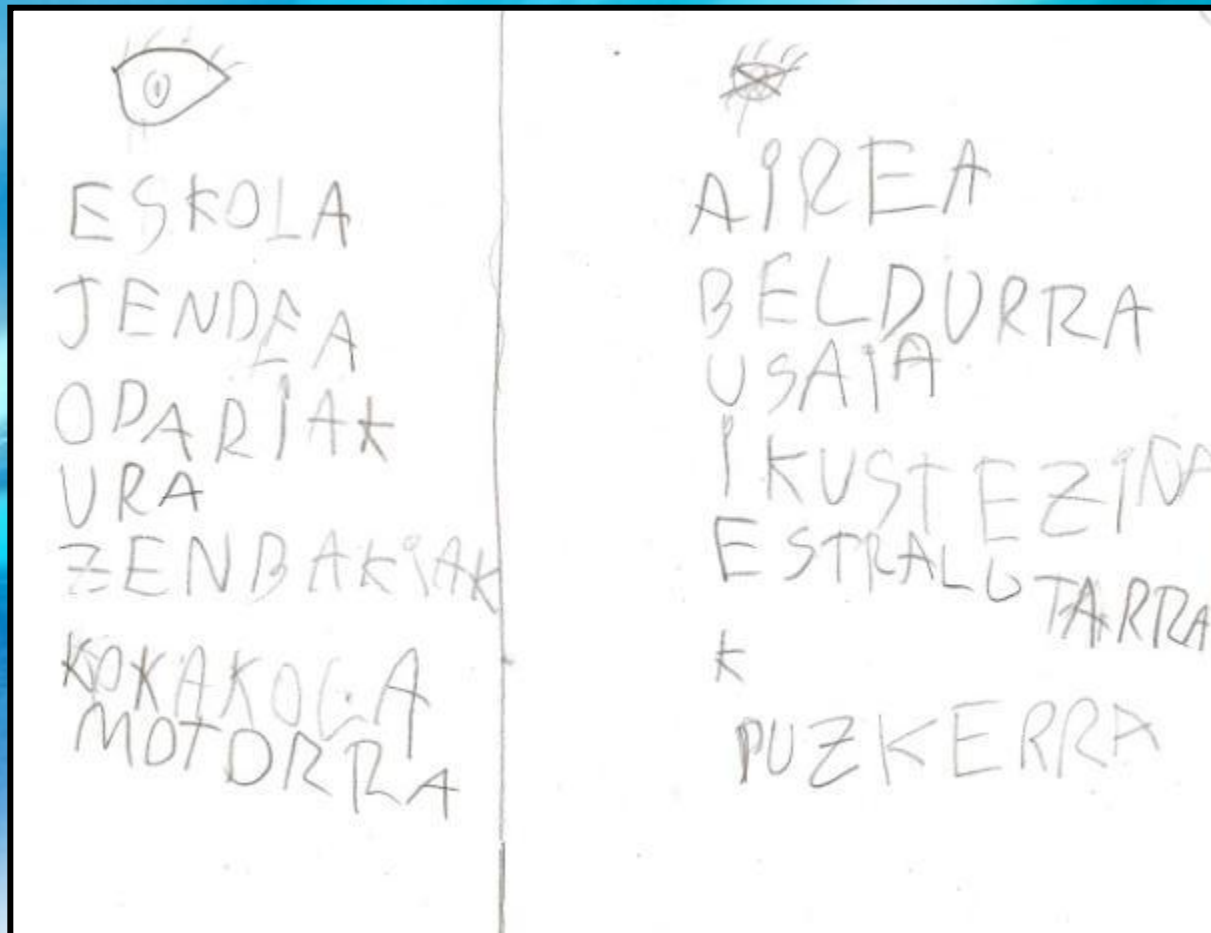 ESKOLA
JENDEA
OPARIAK
URA
ZENBAKIAK
KOKAKOLA
MOTORRA
AIREA
BELDURRA
USAIA
IKUSTEZINA
ESTRALUTARRA
K
PUZKERRA